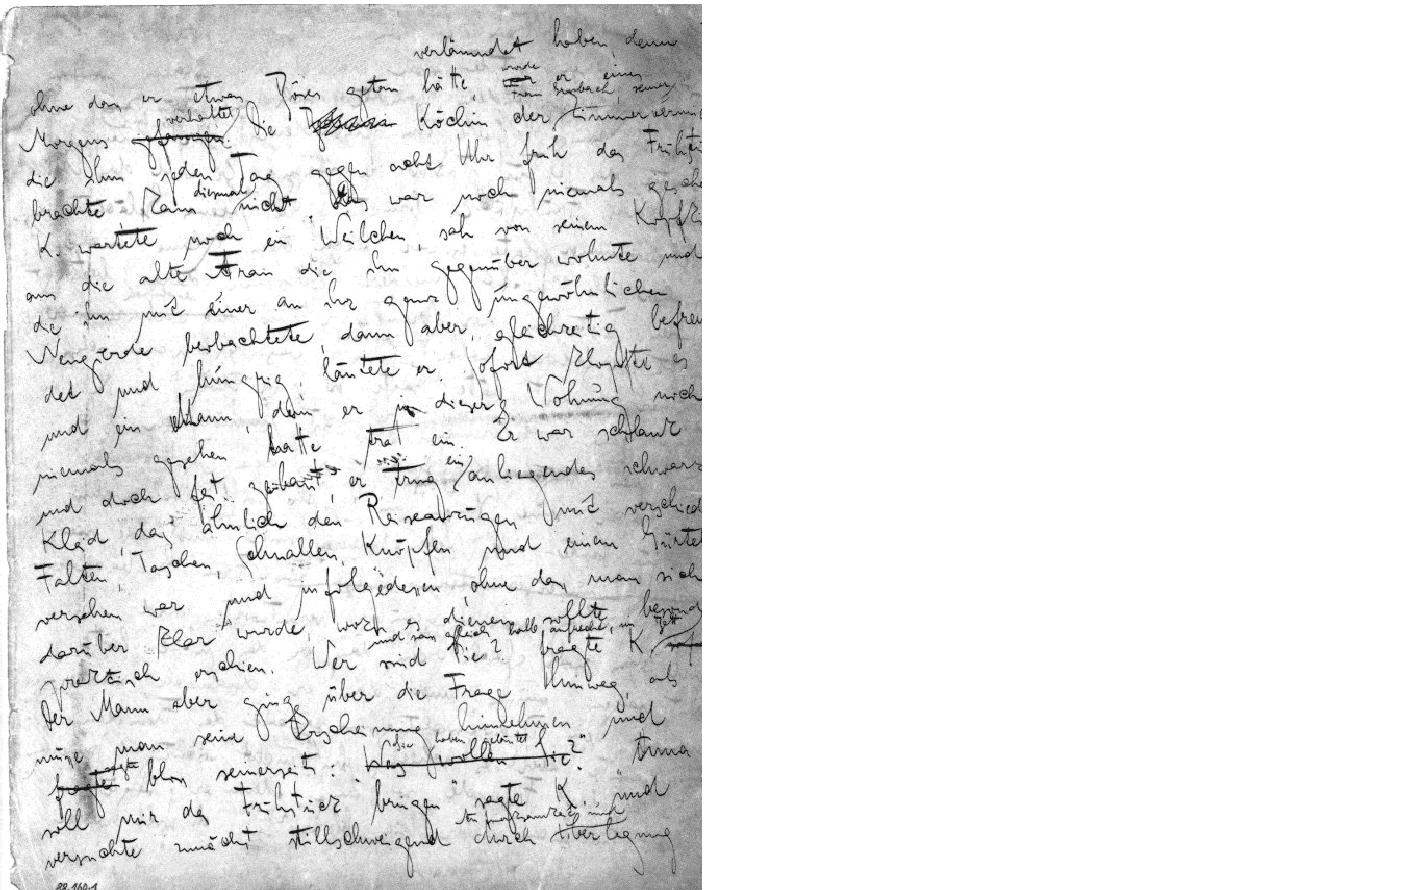 verläumdet haben, denn
ohne dass er etwas Böses getan hätte, wurde er eines
Frau Grubach, seiner
Morgens gefangen. verhaftet Die Köchin der Zimmervermi
die ihm jeden Tag gegen acht Uhr früh das Frühstü
brachte kam diesmal nicht. Das war noch niemals gesche
K. wartete noch ein Weilchen, sah von seinem Kopfki
aus die alte Frau die ihm gegenüber wohnte und
die ihn mit einer an ihr ganz ungewöhnlichen
Neugierde beobachtete, dann aber, gleichzeitig befrem
det und hungrig, läutete er. Sofort klopfte es
und ein Mann, den er in dieser Wohnung noch
niemals gesehen hatte trat ein. Er war schlank
und doch fest gebaut, er trug ein anliegendes schwarz
Kleid, das ähnlich den Reiseanzügen mit verschied
Falten, Taschen, Schnallen, Knöpfen und einem Gürtel
versehen war und infolgedessen, ohne dass man sich
darüber klar wurde, wozu es dienen sollte, besond
praktisch erschien. Wer sind Sie? fragte K.
und sass gleich halb aufrecht im Bett
Der Mann aber ging über die Frage hinweg, als
müsse man seine Erscheinung hinnehmen und
fragte sagte bloss seinerseits: Was wollen Sie? Sie haben geläutet?" "Anna
soll mir das Frühstück bringen" sagte K. und
versuchte zunächst stillschweigend durch Aufmerksamkeit und Überlegung